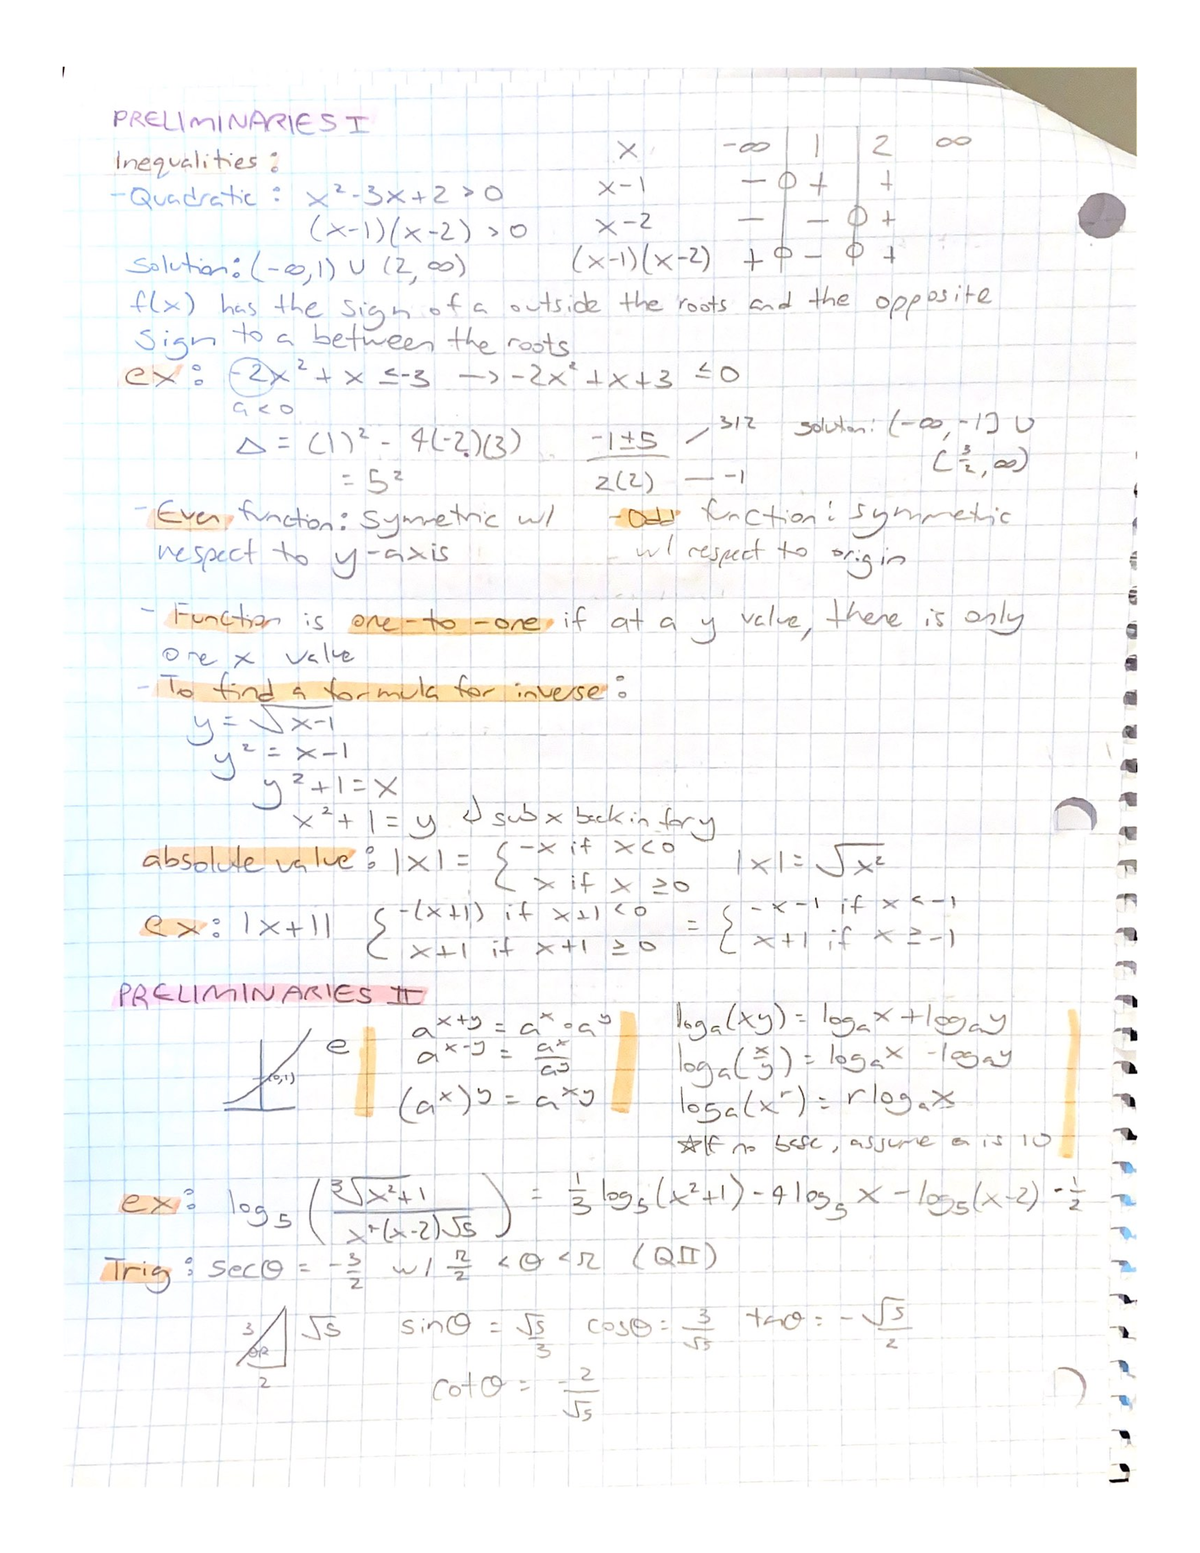 PRELIMINARIES I
Inequalities :
- Quadratic : x² - 3x + 2 > 0
(x-1)(x-2) > 0
Solution : (-∞, 1) ∪ (2, ∞)
x -∞ 1 2 ∞
x-1 - 0 + +
x-2 - - 0 +
(x-1)(x-2) + 0 - 0 +
f(x) has the sign of a outside the roots and the opposite
sign to a between the roots
ex : -2x² + x ≤ -3 → -2x² + x + 3 ≤ 0
a < 0
Δ = (1)² - 4(-2)(3)
= 5²
-1±5 / 2(2) 3/2 -1
solution : (-∞, -1] ∪
(3/2, ∞)
- Even function : Symmetric w/
respect to y-axis
- Odd function : symmetric
w/ respect to origin
- Function is one-to-one if at a y value, there is only
one x value
- To find a formula for inverse :
y = √x-1
y² = x-1
y²+1 = x
x²+1 = y ↲ sub x back in for y
absolute value : |x| = { -x if x<0 |x| = √x²
x if x ≥0
ex : |x+1| { -(x+1) if x+1<0 = { -x-1 if x < -1
x+1 if x+1 ≥ 0 x+1 if x ≥ -1
PRELIMINARIES II
(0,1) e
a^x+y = a^x · a^y
a^x-y = a^x/a^y
(a^x)^y = a^xy
logₐ(xy) = logₐx + logₐy
logₐ(x/y) = logₐx - logₐy
logₐ(x^r) = r logₐx
☆If no base, assume a is 10
ex : log₅ (³√x²+1 / x⁴(x-2)√5) = 1/3 log₅(x²+1) - 4 log₅ x - log₅(x-2) - 1/2
Trig : secθ = -3/2 w/ π/2 < θ < π (QII)
3 √5 θR 2
sinθ = √5/3 cosθ = 3/√5 tanθ = -√5/2
cotθ = -2/√5